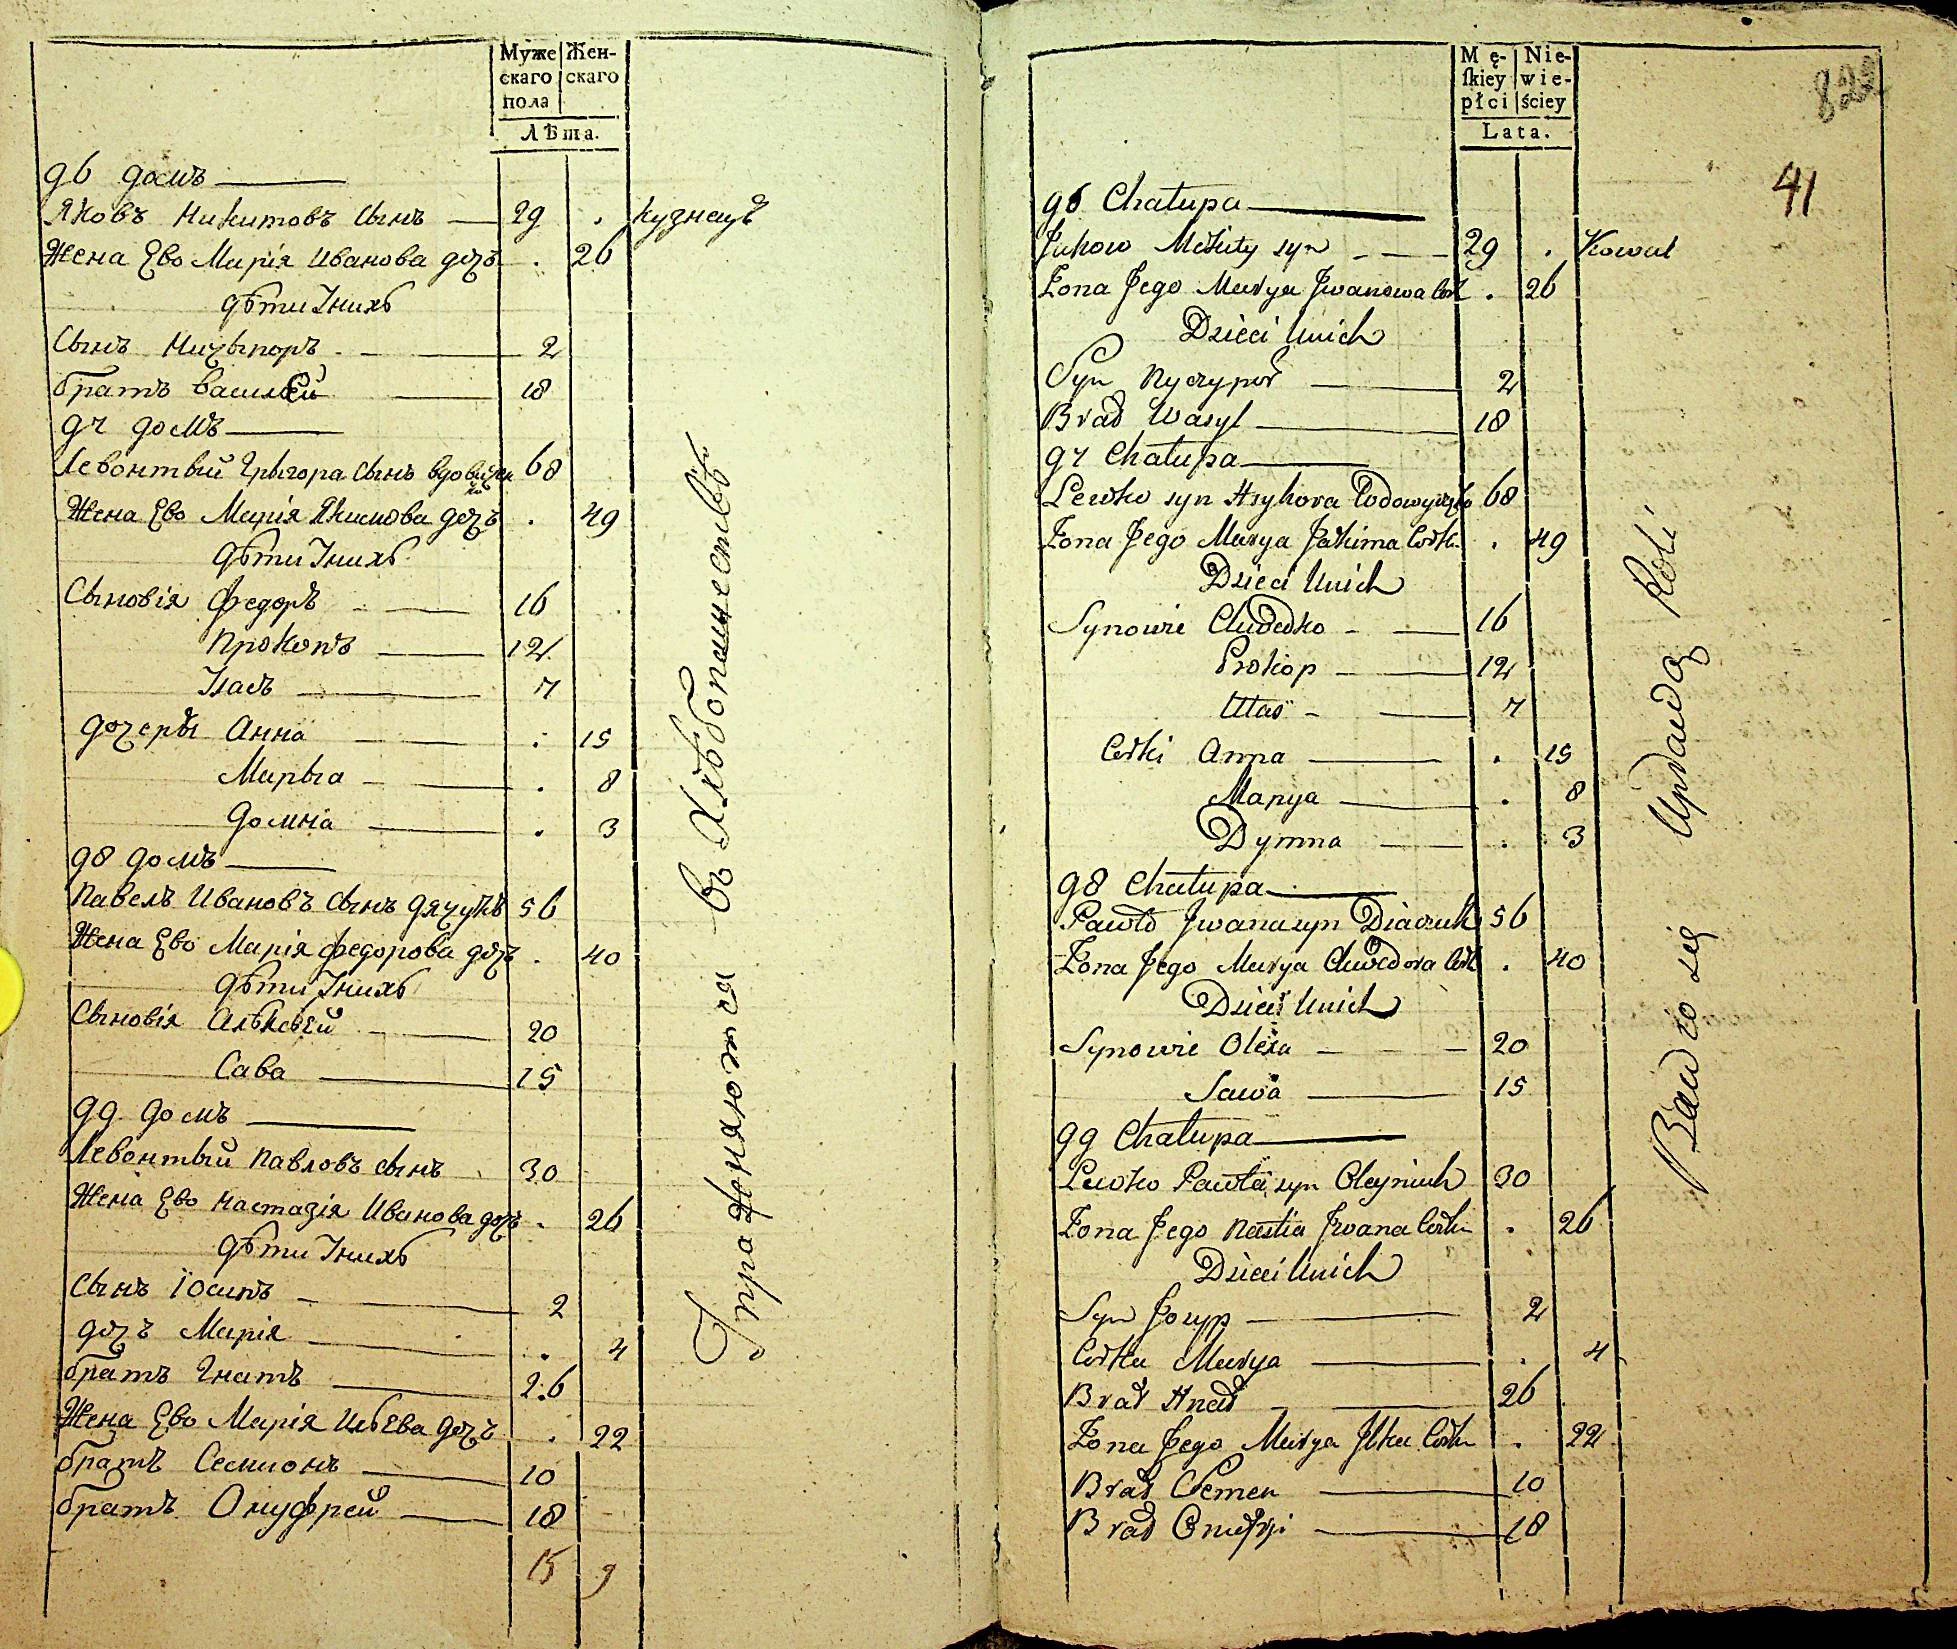 Муже Жен-
скаго скаго
пола
Лѣта.
96 домъ
Яковъ Никитовъ сынъ 29 . кузнецъ
Жена Ево Марія Иванова дочь . 26
дѣти Унихъ
Сынъ Ничыпоръ 2
братъ Василѣй 18
97 домъ
Левонтый Грыгора сынъ 68
Жена Ево Марія Якимова дочь . 49
дѣти Унихъ
Сыновія Федоръ 16
Прокопъ 12
Уласъ 7
дочеры Анна . 15
Марыа . 8
Домна . 3
98 домъ
Павелъ Ивановъ сынъ дячукъ 56
Жена Ево Марія федорова дочь . 40
дѣти Унихъ
Сыновія Алѣксѣй 20
Сава 15
99 домъ
Левонтый Павловъ сынъ 30
Жена Ево Настазія Иванова дочь . 26
дѣти Унихъ
Сынъ Іосипъ 2
дочъ Марія . 4
братъ Гнатъ 26
Жена Ево Марія Ильева дочъ . 22
братъ Семионъ 10
братъ Онуфрей 18
15 9
Упражняются въ Хлѣбопашествѣ
Mę- Nie-
ſkiey wie-
płci ściey
Lata.
822
41
96 Chałupa
Jakow Mikity syn 29 . Kowal
Żona Jego Marya Jwanowa Cork . 26
Dzieci Unich
Syn Nyczypor 2
Brat Wasyl 18
97 Chałupa
Lewko syn Hryhora 68
Żona Jego Marya Jakima Cork . 49
Dzieci Unich
Synowie Chwedko 16
Prokop 12
Ułas 7
Corki Anna . 15
Marya . 8
Dymna . 3
98 Chałupa
Pawło Jwana syn Diaczuk 56
Żona Jego Marya Chwedora Cork . 40
Dzieci Unich
Synowie Olexa 20
Sawa 15
99 Chałupa
Lewko Pawła syn Oleynick 30
Żona Jego Nastia Jwana Cork . 26
Dzieci Unich
Syn Jozyp 2
Corka Marya . 4
Brat Hnat 26
Żona Jego Marya Jlka Cork . 22
Brat Semen 10
Brat Onufri 18
Bawio się Uprawą Roli